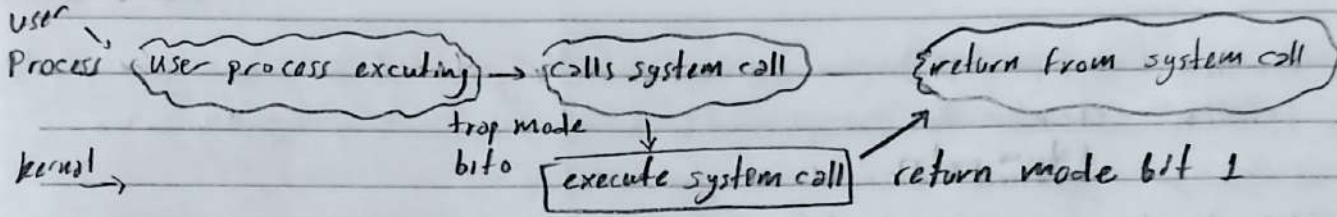 user
Process user process excuting → calls system call return from system call
trap mode
bit 0
kernal → execute system call return mode bit 1